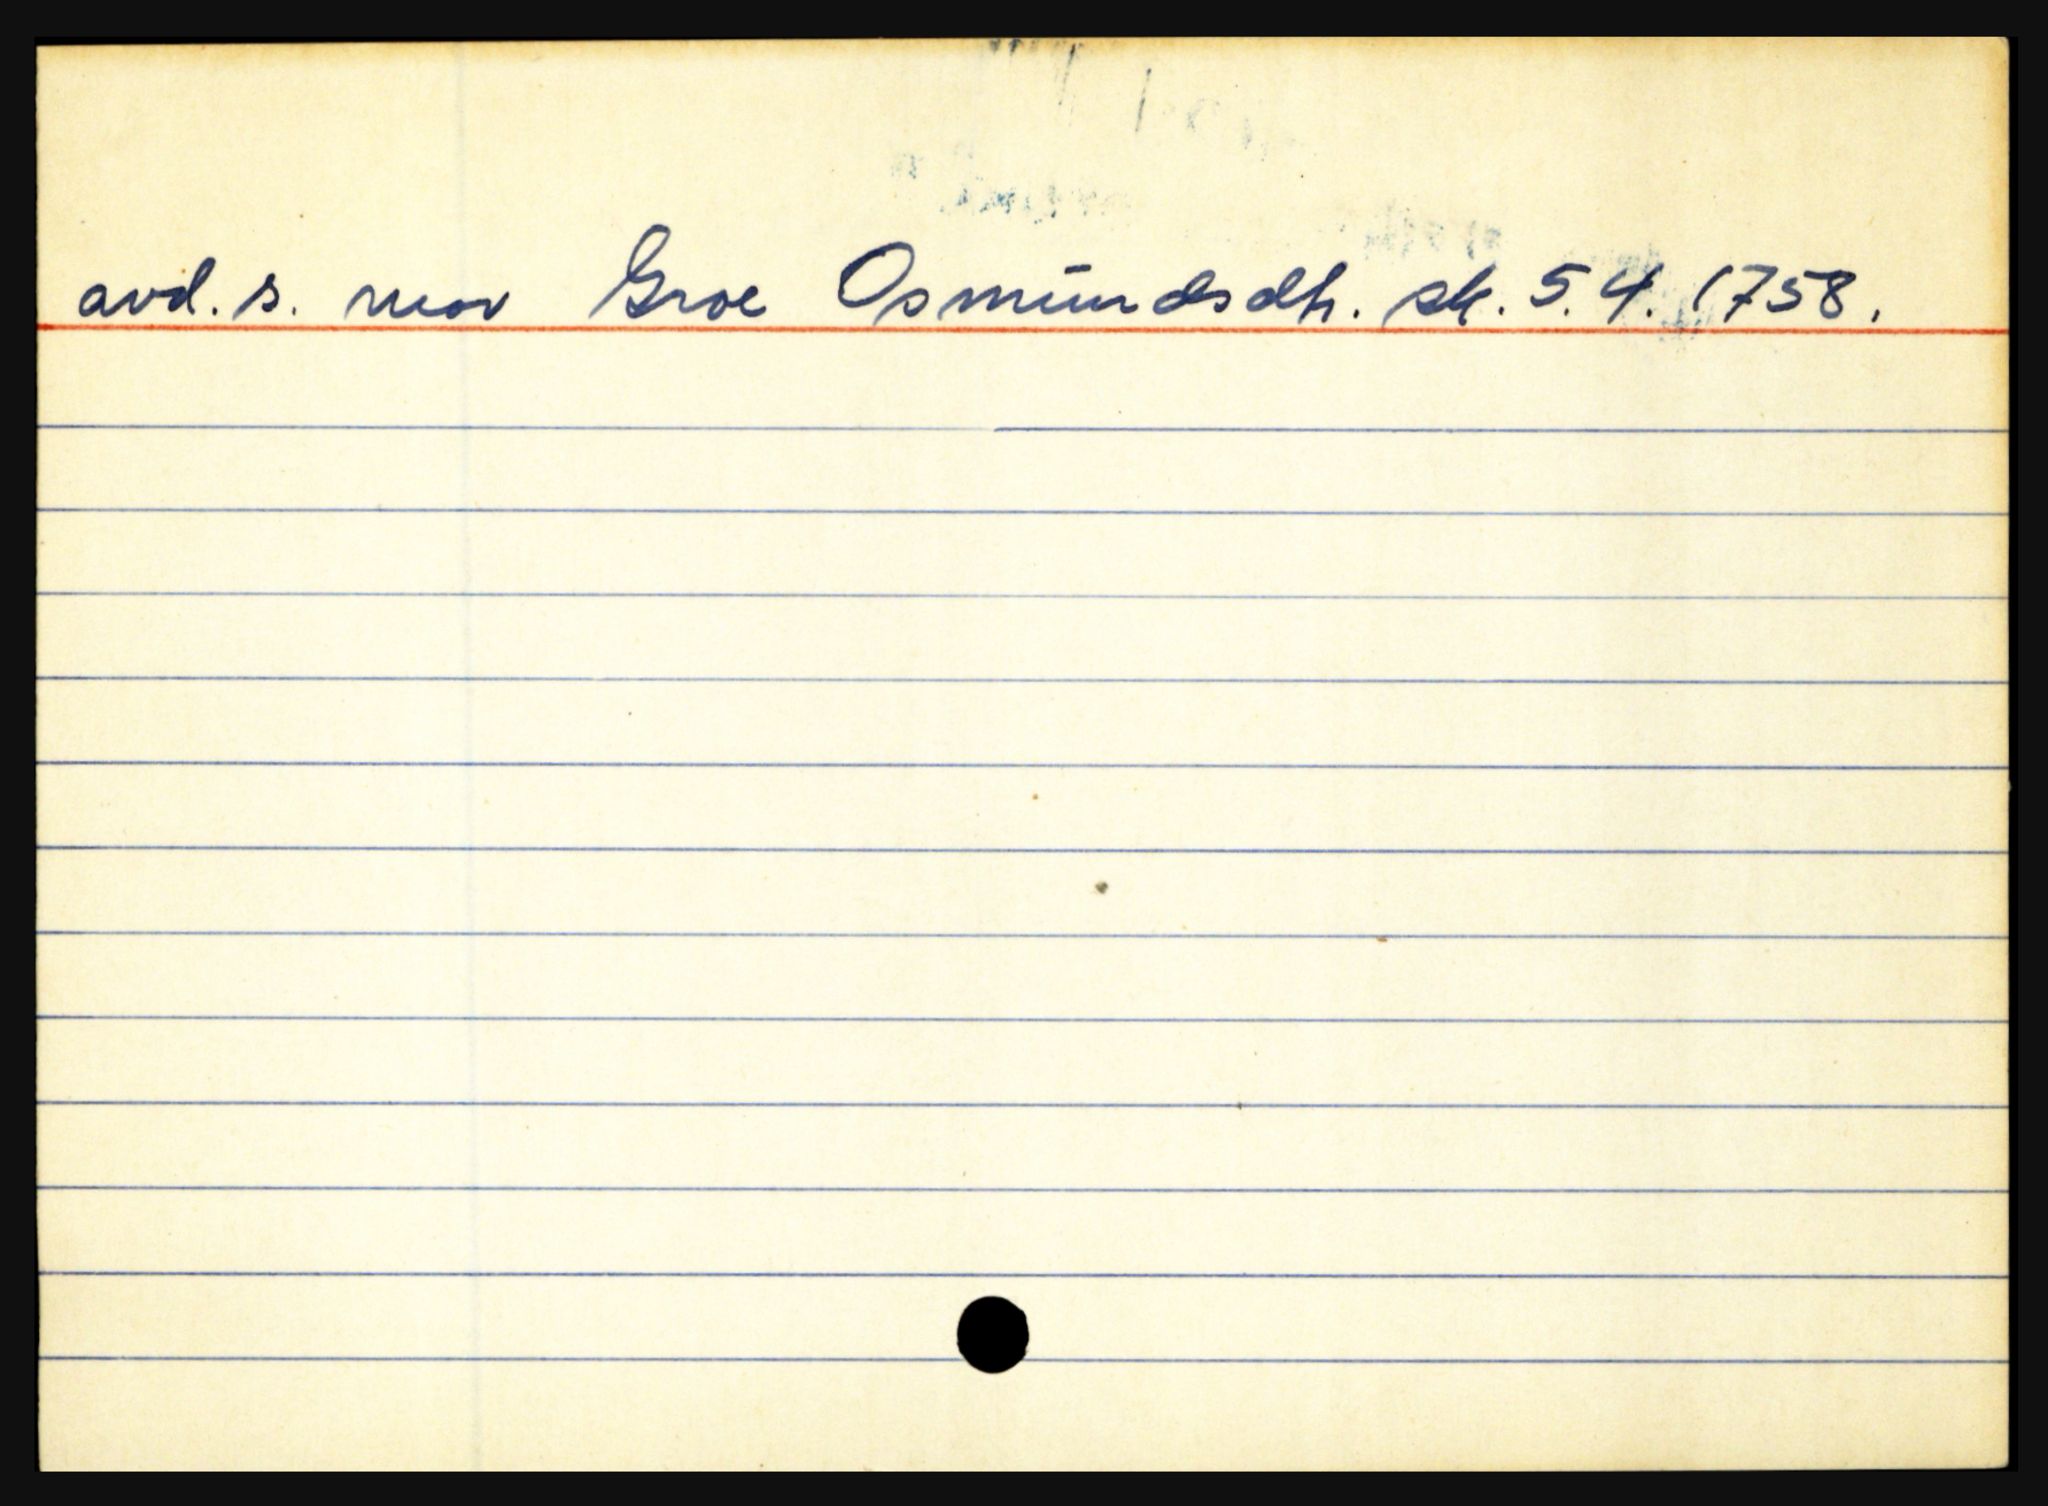 avd. s. mor Groe Osmundsdh. sk. 5.4.1758.